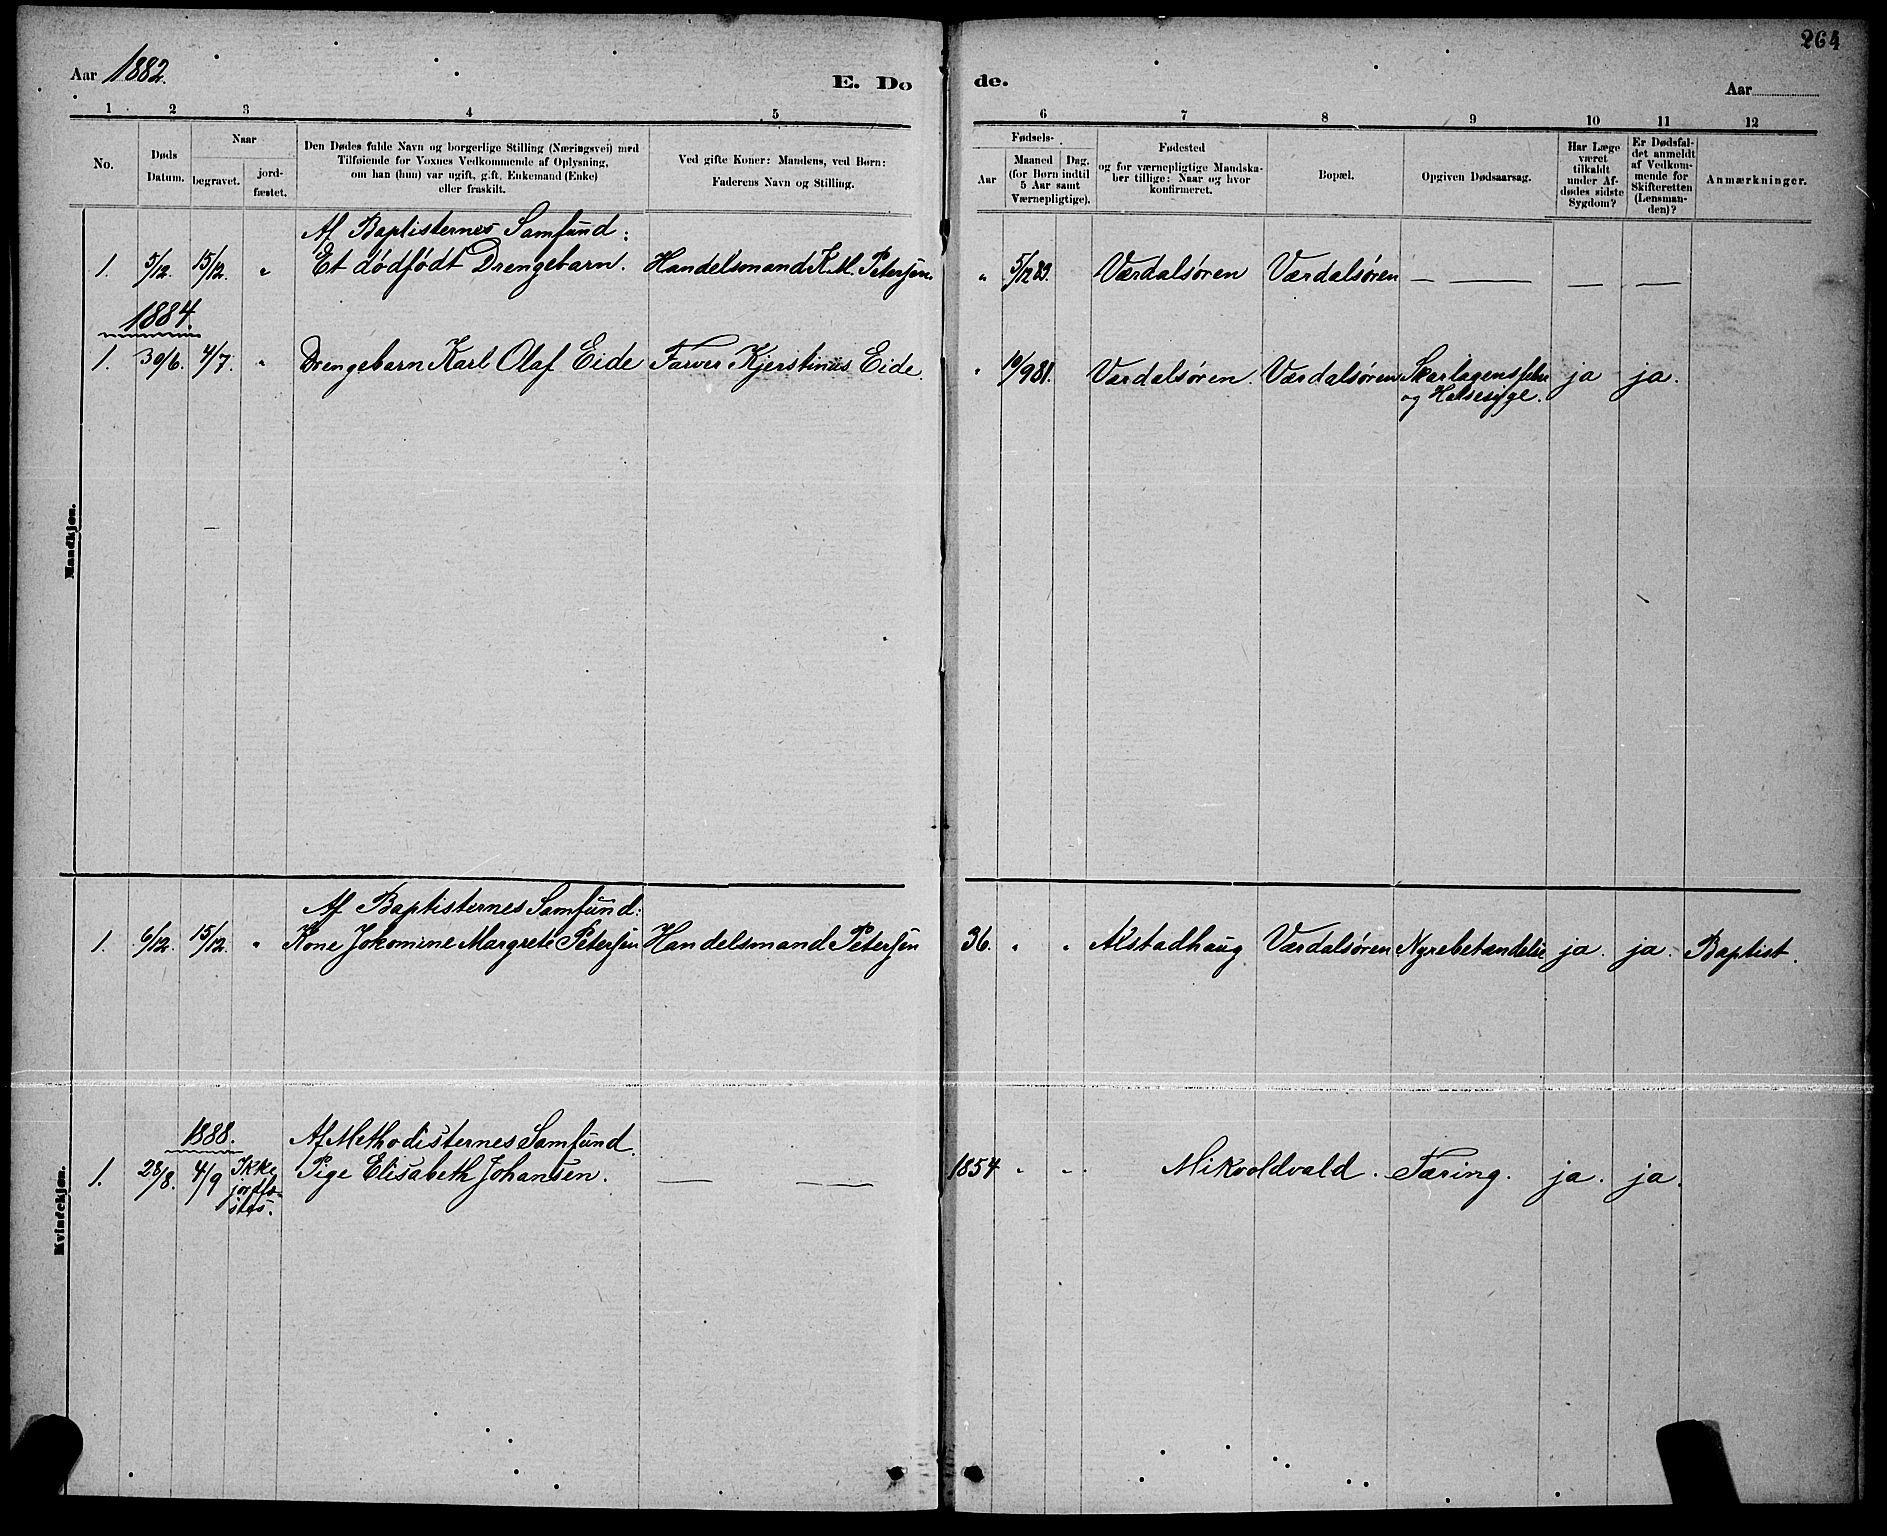 264
Aar 1882.
E. Do
de.
Aar
1 2 3 4 5 6 7 8 9 10 11 12
No.
Døds Datum.
Naar
begravet.
jord-
fæstet.
Den Dødes fulde Navn og borgerlige Stilling (Næringsvei) med
Tilføiende for Voxnes Vedkommende af Oplysning,
om han (hun) var ugift, gift, Enkemand (Enke)
eller fraskilt.
Ved gifte Koner: Mandens, ved Børn:
Faderens Navn og Stilling.
Fødsels-
Aar
Maaned Dag.
(for Børn indtil
5 Aar samt
Værnepligtige).
Fødested
og for værnepligtige Mandska-
ber tillige: Naar og hvor
konfirmeret.
Bopæl.
Opgiven Dødsaarsag.
Har Læge
været
tilkaldt
under Af-
dødes sidste
Sygdom?
Er Dødsfal-
det anmeldt
af Vedkom-
mende for
Skifteretten
(Lensman-
den)?
Anmærkninger.
Mandkjøn.
Af Baptisternes Samfund:
1. 5/12. 15/12. " Et dødfødt Drengebarn. Handelsmand K. M. Petersen. " 5/12 82. Værdalsøren Værdalsøren — — — —
1884.
1. 30/6. 4/7. " Drengebarn Karl Olaf Eide Farver Kjerstinus Eide. " 10/9 81. Værdalsøren. Værdalsøren Skarlagensfeber ja ja.
og Halsesyge.
Kvindekjøn.
Af Baptisternes Samfund:
1. 6/12. 15/12. " Kone Jokomine Margrete Petersen Handelsmand Petersen 36. " " Alstadhaug Værdalsøren Nyrebetændelse ja. ja. Baptist.
1888. Af Methodisternes Samfund.
1. 28/8. 4/9 Ikke Pige Elisabeth Johansen. — — — 1854 " " Mikvoldvald. Tæring. ja. ja.
jordfæ-
stes.